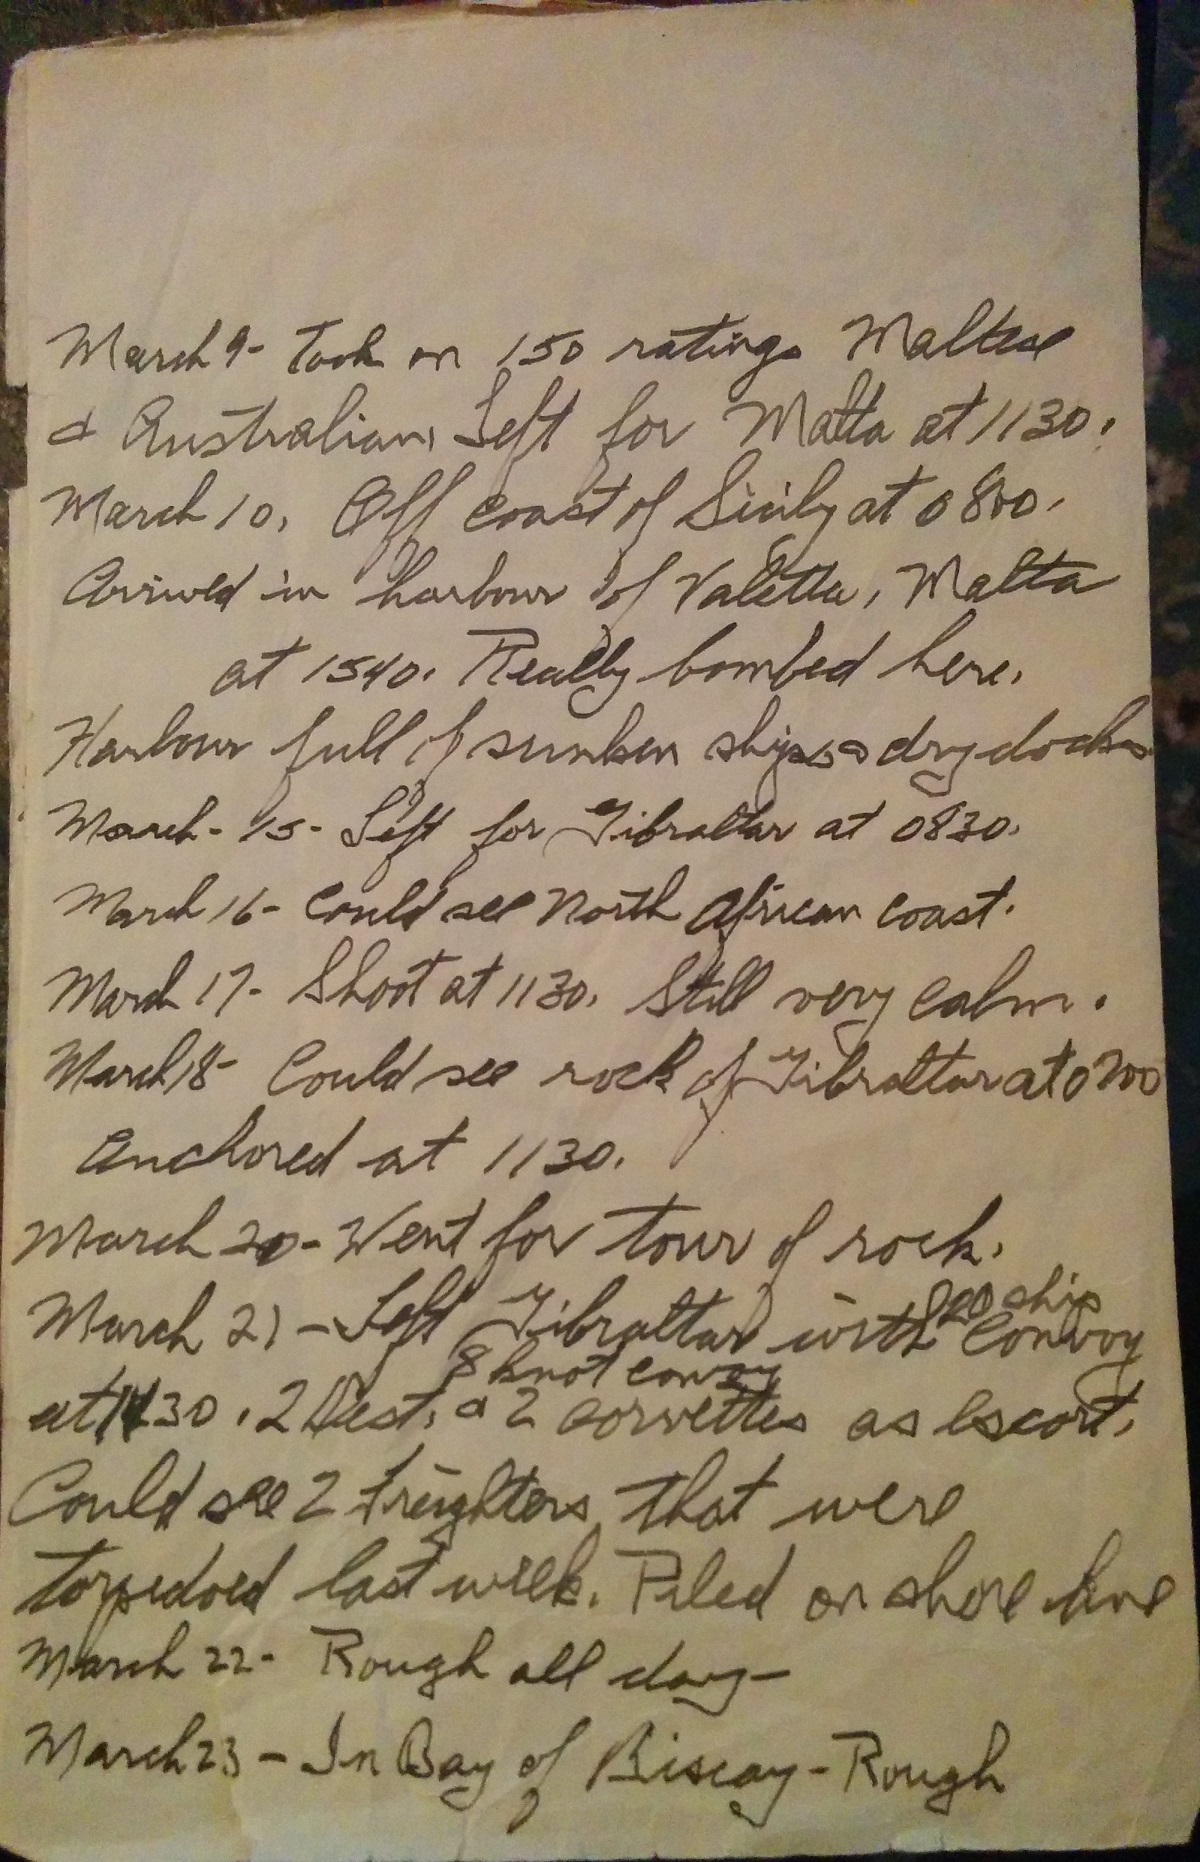 March 9- Took on 150 ratings Maltese
& Australian, Left for Malta at 1130.
March 10, Off coast of Sicily at 0800.
Arrived in harbour of Valetta, Malta
at 1540. Really bombed here.
Harbour full of sunken ships & dry docks
March- 15- Left for Gibraltar at 0830.
March 16- Could see North African coast.
March 17- Shoot at 1130. Still very calm.
March 18- Could see rock of Gibraltar at
Anchored at 1130.
March 20- Went for tour of rock.
March 21- Left Gibraltar with ship convoy
8 knot convoy
at 30. 2 Dest. & 2 corvettes as escort.
Could see 2 freighters that were
torpedoed last week. Piled on shore line
March 22- Rough all day-
March 23- In Bay of Biscay- Rough